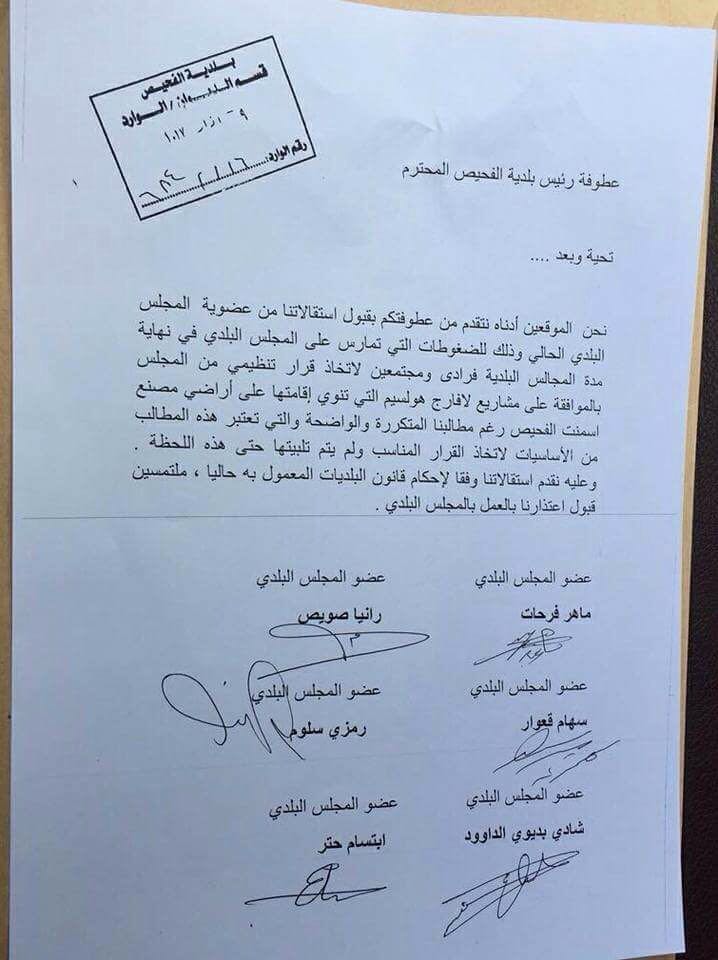 بلدية الفحيص
قسم الديوان / الوارد
٠٩ اذار ٢٠١٧
رقم الوارد:
عطوفة رئيس بلدية الفحيص المحترم
تحية وبعد ....
نحن الموقعين أدناه نتقدم من عطوفتكم بقبول استقالاتنا من عضوية المجلس
البلدي الحالي وذلك للضغوطات التي تمارس على المجلس البلدي في نهاية
مدة المجالس البلدية فرادى ومجتمعين لاتخاذ قرار تنظيمي من المجلس
بالموافقة على مشاريع لافارج هولسيم التي تنوي إقامتها على أراضي مصنع
اسمنت الفحيص رغم مطالبنا المتكررة والواضحة والتي تعتبر هذه المطالب
من الأساسيات لاتخاذ القرار المناسب ولم يتم تلبيتها حتى هذه اللحظة .
وعليه نقدم استقالاتنا وفقا لإحكام قانون البلديات المعمول به حاليا ، ملتمسين
قبول اعتذارنا بالعمل بالمجلس البلدي .
عضو المجلس البلدي عضو المجلس البلدي
ماهر فرحات رانيا صويص
عضو المجلس البلدي عضو المجلس البلدي
سهام قعوار رمزي سلوم
عضو المجلس البلدي عضو المجلس البلدي
شادي بديوي الداوود ابتسام حتر